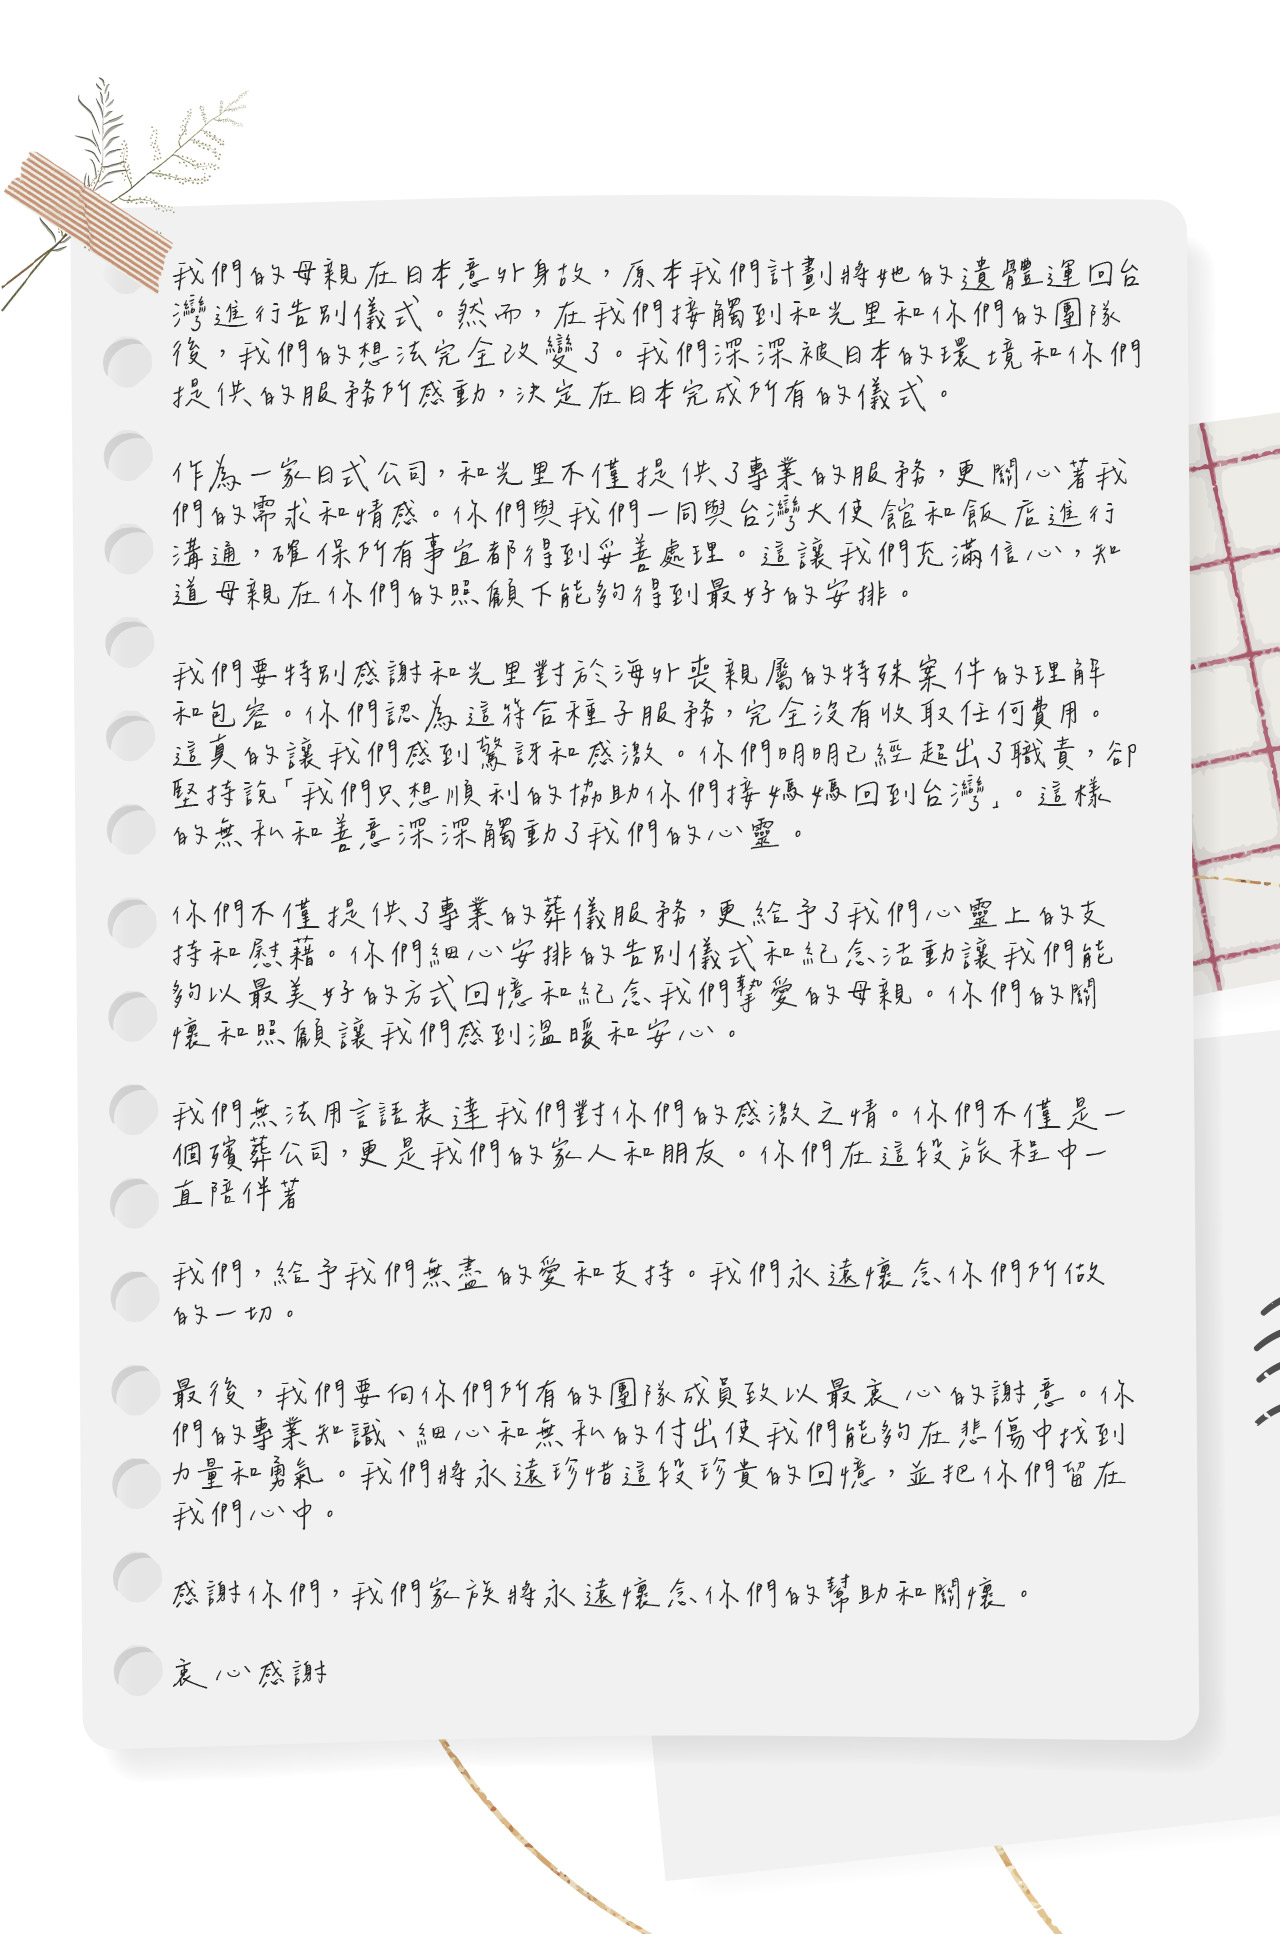 我們的母親在日本意外身故，原本我們計劃將她的遺體運回台
灣進行告別儀式。然而，在我們接觸到和光里和你們的團隊
後，我們的想法完全改變了。我們深深被日本的環境和你們
提供的服務所感動，決定在日本完成所有的儀式。
作為一家日式公司，和光里不僅提供了專業的服務，更關心著我
們的需求和情感。你們與我們一同與台灣大使館和飯店進行
溝通，確保所有事宜都得到妥善處理。這讓我們充滿信心，知
道母親在你們的照顧下能夠得到最好的安排。
我們要特別感謝和光里對於海外喪親屬的特殊案件的理解
和包容。你們認為這符合種子服務，完全沒有收取任何費用。
這真的讓我們感到驚訝和感激。你們明明已經超出了職責，卻
堅持說「我們只想順利的協助你們接媽媽回到台灣」。這樣
的無私和善意深深觸動了我們的心靈。
你們不僅提供了專業的葬儀服務，更給予了我們心靈上的支
持和慰藉。你們細心安排的告別儀式和紀念活動讓我們能
夠以最美好的方式回憶和紀念我們摯愛的母親。你們的關
懷和照顧讓我們感到溫暖和安心。
我們無法用言語表達我們對你們的感激之情。你們不僅是一
個殯葬公司，更是我們的家人和朋友。你們在這段旅程中一
直陪伴著
我們，給予我們無盡的愛和支持。我們永遠懷念你們所做
的一切。
最後，我們要向你們所有的團隊成員致以最衷心的謝意。你
們的專業知識、細心和無私的付出使我們能夠在悲傷中找到
力量和勇氣。我們將永遠珍惜這段珍貴的回憶，並把你們留在
我們心中。
感謝你們，我們家族將永遠懷念你們的幫助和關懷。
衷心感謝